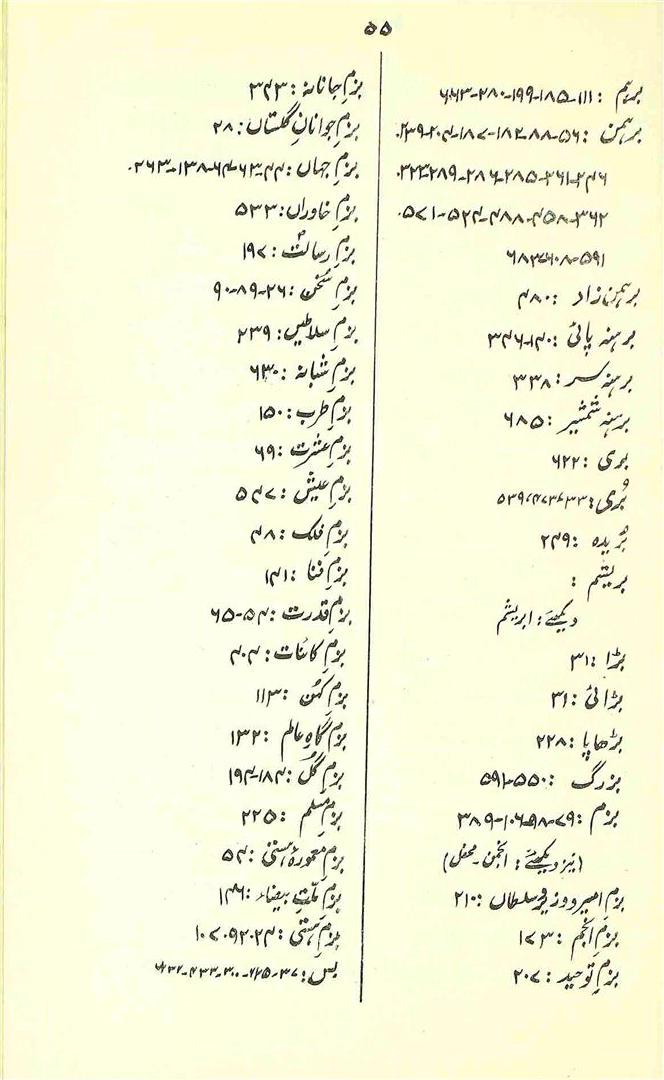 ۵۵
برہم : ۱۱۱-۱۸۵-۱۹۹-۲۸۰-۶۶۳
برہمن : ۵۶-۸۸-۱۸۲-۱۸۷-۲۰۴-۲۳۹-
۲۴۶-۲۶۱-۲۸۵-۲۸۶-۲۸۹-۳۲۳-
۳۶۲-۴۵۸-۴۸۸-۵۲۴-۵۷۱-
۵۹۱-۶۰۸-۶۸۲
برہمن زاد : ۴۸۰
برہنہ پائی : ۱۴۰-۳۴۶
برہنہ سر : ۳۳۸
برہنہ شمشیر : ۶۸۵
بری : ۶۲۲
بُری :
بُریدہ : ۲۴۹
بریشم :
دیکھئے : ابریشم
بڑا : ۳۱
بڑائی : ۳۱
بڑھاپا : ۲۲۸
بزرگ : ۵۵۰-۵۹۱
بزم : ۷۹-۹۸-۱۰۶-۳۸۹
(نیز دیکھئے : انجمن - محفل)
بزمِ امیر و وزیر و سلطاں : ۲۱۰
بزمِ انجم : ۱۷۳
بزمِ توحید : ۲۰۷
بزمِ جانانہ : ۳۴۳
بزمِ جوانانِ گلستاں : ۲۸
بزمِ جہاں : ۴۴-۶۳-۶۴-۱۳۸-۲۶۳-
بزمِ خاوراں : ۵۳۳
بزمِ رسالت : ۱۹۷
بزمِ سخن : ۲۶-۸۹-۹۰
بزمِ سلاطیں : ۲۳۹
بزمِ شبانہ : ۶۳۰
بزمِ طرب : ۱۵۰
بزمِ عشرت : ۶۹
بزمِ عیش : ۵۴۷
بزمِ فلک : ۴۸
بزمِ فنا : ۱۴۱
بزمِ قدرت : ۵۴-۶۵
بزمِ کائنات : ۴۰۴
بزمِ کہن : ۱۱۳
بزم گاہِ عالم : ۱۳۲
بزمِ گل : ۱۸۴-۱۹۴
بزمِ مسلم : ۲۲۵
بزمِ معمورۂ ہستی : ۵۴
بزمِ ملّتِ بیضاء : ۱۴۶
بزمِ ہستی : ۲۴-۹۲-۱۰۷
بس :